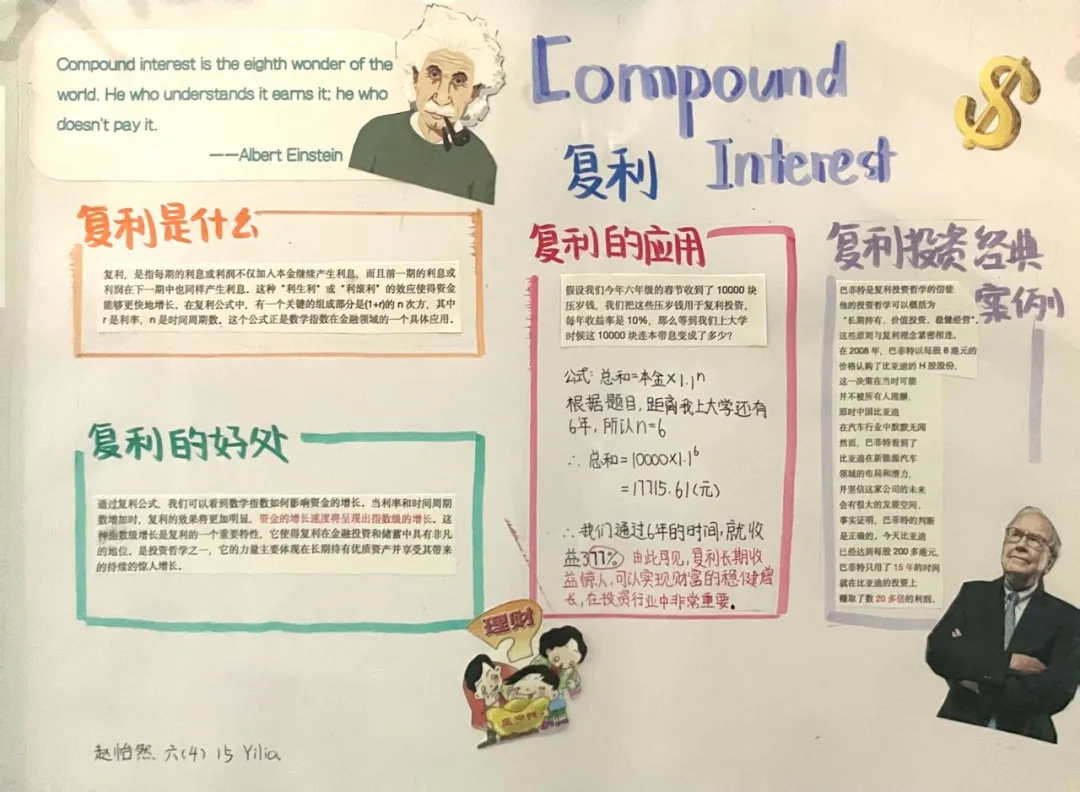 Compound interest is the eighth wonder of the
world. He who understands it earns it; he who
doesn't pay it.
——Albert Einstein
Compound
复利 Interest
复利是什么
复利，是指每期的利息或利润不仅加入本金继续产生利息，而且前一期的利息或
利润在下一期中也同样产生利息。这种“利生利”或“利滚利”的效应使得资金
能够更快地增长。在复利公式中，有一个关键的组成部分是(1+r)的 n 次方，其中
r 是利率，n 是时间周期数。这个公式正是数学指数在金融领域的一个具体应用。
复利的好处
通过复利公式，我们可以看到数学指数如何影响资金的增长。当利率和时间周期
数增加时，复利的效果将更加明显，资金的增长速度将呈现出指数级的增长。这
种指数级增长是复利的一个重要特性，它使得复利在金融投资和储蓄中具有非凡
的地位。是投资哲学之一，它的力量主要体现在长期持有优质资产并享受其带来
的持续的惊人增长。
复利的应用
假设我们今年六年级的春节收到了 10000 块
压岁钱，我们把这些压岁钱用于复利投资，
每年收益率是 10%，那么等到我们上大学
时候这 10000 块连本带息变成了多少？
公式: 总和=本金×1.1ⁿ
根据题目，距离我上大学还有
6年，所认n=6
∴ 总和=10000×1.1⁶
=17715.61(元)
∴我们通过6年的时间,就收
益377% 由此可见,复利长期收
益惊人,可以实现财富的稳健增
长,在投资行业中非常重要。
复利投资经典
案例
巴菲特是复利投资哲学的信徒
他的投资哲学可以概括为
“长期持有、价值投资、稳健经营”。
这些原则与复利理念紧密相连。
在 2008 年，巴菲特以每股 8 港元的
价格认购了比亚迪的 H 股股份，
这一决策在当时可能
并不被所有人理解，
那时中国比亚迪
在汽车行业中默默无闻
然而，巴菲特看到了
比亚迪在新能源汽车
领域的布局和潜力，
并坚信这家公司的未来
会有很大的发展空间，
事实证明，巴菲特的判断
是正确的，今天比亚迪
已经达到每股 200 多港元，
巴菲特只用了 15 年的时间
就在比亚迪的投资上
赚取了数 20 多倍的利润。
理财
?
压岁钱
赵怡然 六(4) 15 Yilia